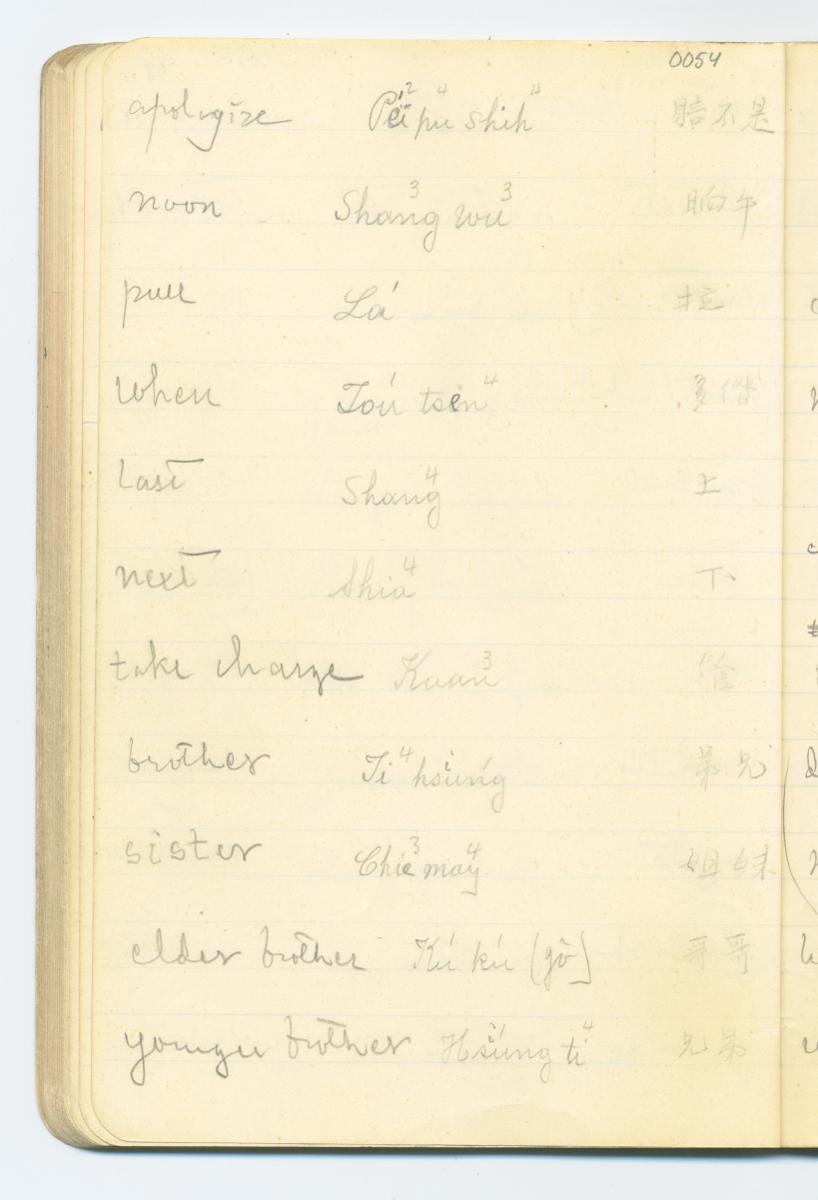 0054
apologize Pei² pu⁴ shih⁴ 賠不是
noon Shang³ wu³ 晌午
pull La' 拉
when Tou' tsen⁴ 多偺
Last Shang⁴ 上
next Shia⁴ 下
take charge Kuan³ 管
brother Ti⁴ hsiung' 弟兄
sister Chie³ may⁴ 姐妹
elder brother Kú kú (gò) 哥哥
younger brother Hsiung' ti⁴ 兄弟